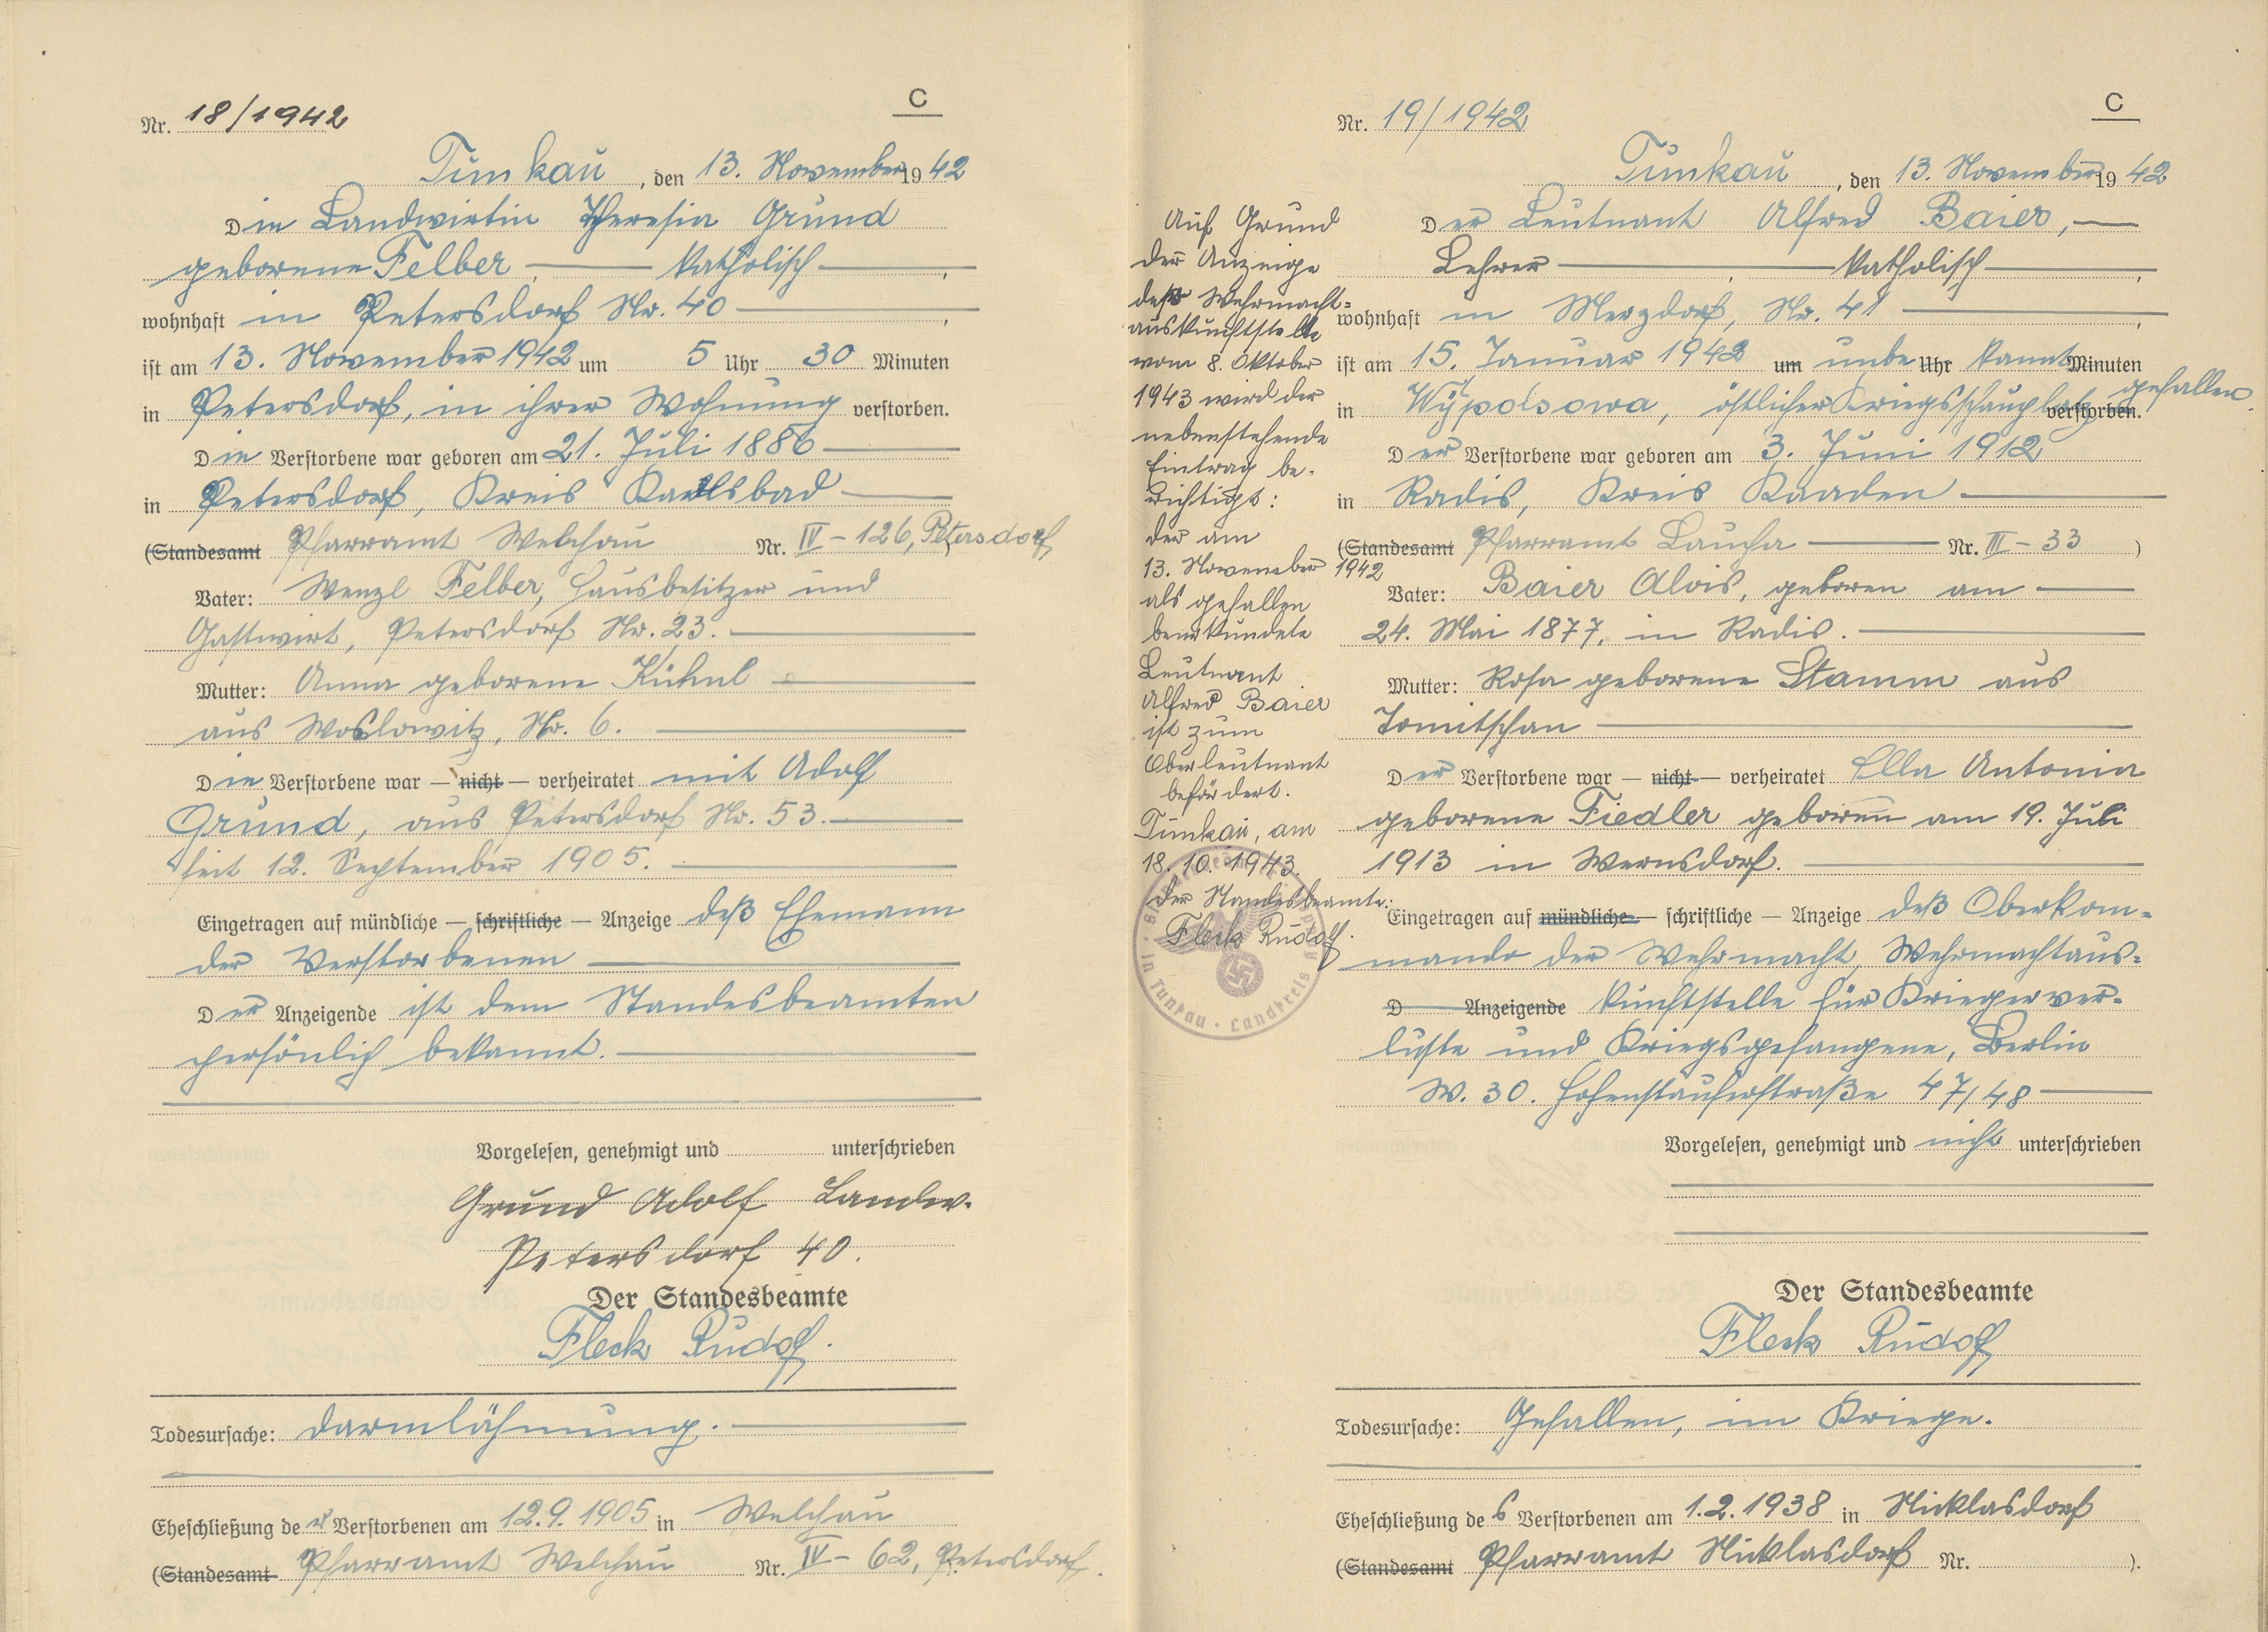 C
Nr. 18/1942
Tunkau, den 13. November 1942
Die Landwirtin Theresia Grund
geborene Felber — katholisch —,
wohnhaft in Petersdorf Nr. 40 —,
ist am 13. November 1942 um 5 Uhr 30 Minuten
in Petersdorf, in ihrer Wohnung verstorben.
Die Verstorbene war geboren am 21. Juli 1886 —
in Petersdorf, Kreis Karlsbad —
(Standesamt Pfarramt Welchau Nr. IV - 126, Petersdorf)
Vater: Wenzl Felber, Hausbesitzer und
Gastwirt, Petersdorf Nr. 23. —
Mutter: Anna geborene Kühnl —
aus Woslowitz, Nr. 6. —
Die Verstorbene war — nicht — verheiratet mit Adolf
Grund, aus Petersdorf Nr. 53. —
seit 12. September 1905. —
Eingetragen auf mündliche — schriftliche — Anzeige deß Ehemann
der Verstorbenen —
Der Anzeigende ist dem Standesbeamten
persönlich bekannt. —
Vorgelesen, genehmigt und unterschrieben
Grund Adolf Landw.
Petersdorf 40.
Der Standesbeamte
Fleck Rudolf.
Todesursache: Darmlähmung. —
Eheschließung der Verstorbenen am 12.9.1905 in Welchau
(Standesamt Pfarramt Welchau Nr. IV - 62, Petersdorf.
C
Nr. 19/1942
Tunkau, den 13. November 1942
Der Leutnant Alfred Baier, —
Lehrer — katholisch —,
wohnhaft in Merzdorf, Nr. 41 —,
ist am 15. Januar 1942 um unbe Uhr kannt Minuten
in Wypolsowa, östlicher Kriegsschauplatz verstorben. gefallen.
Der Verstorbene war geboren am 3. Juni 1912
in Radis, Kreis Kaaden —
(Standesamt Pfarramt Laucha — Nr. III - 33 )
Vater: Baier Alois, geboren am —
24. Mai 1877, in Radis. —
Mutter: Rosa geborene Stamm aus
Tomitschan —
Der Verstorbene war — nicht — verheiratet Ella Antonia
geborene Fiedler geboren am 19. Juli
1913 in Wernsdorf. —
Eingetragen auf mündliche — schriftliche — Anzeige deß Oberkom-
mando der Wehrmacht, Wehrmachtaus-
D Anzeigende kunftstelle für Kriegerver-
luste und Kriegsgefangene, Berlin
W. 30. Hohenstaufenstraße 47/48 —
Vorgelesen, genehmigt und nicht unterschrieben
Der Standesbeamte
Fleck Rudolf
Todesursache: Gefallen, im Kriege.
Eheschließung des Verstorbenen am 1.2.1938 in Nicklasdorf
(Standesamt Pfarramt Nicklasdorf Nr. ).
Auf Grund
der Anzeige
deß Wehrmacht-
auskunftstelle
vom 8. Oktober
1943 wird der
nebenstehende
Eintrag be-
richtigt:
der am
13. November 1942
als gefallen
beurkundete
Leutnant
Alfred Baier
ist zum
Oberleutnant
befördert.
Tunkau, am
18.10.1943.
Der Standesbeamte:
Fleck Rudolf.
in Tunkau · Landkreis